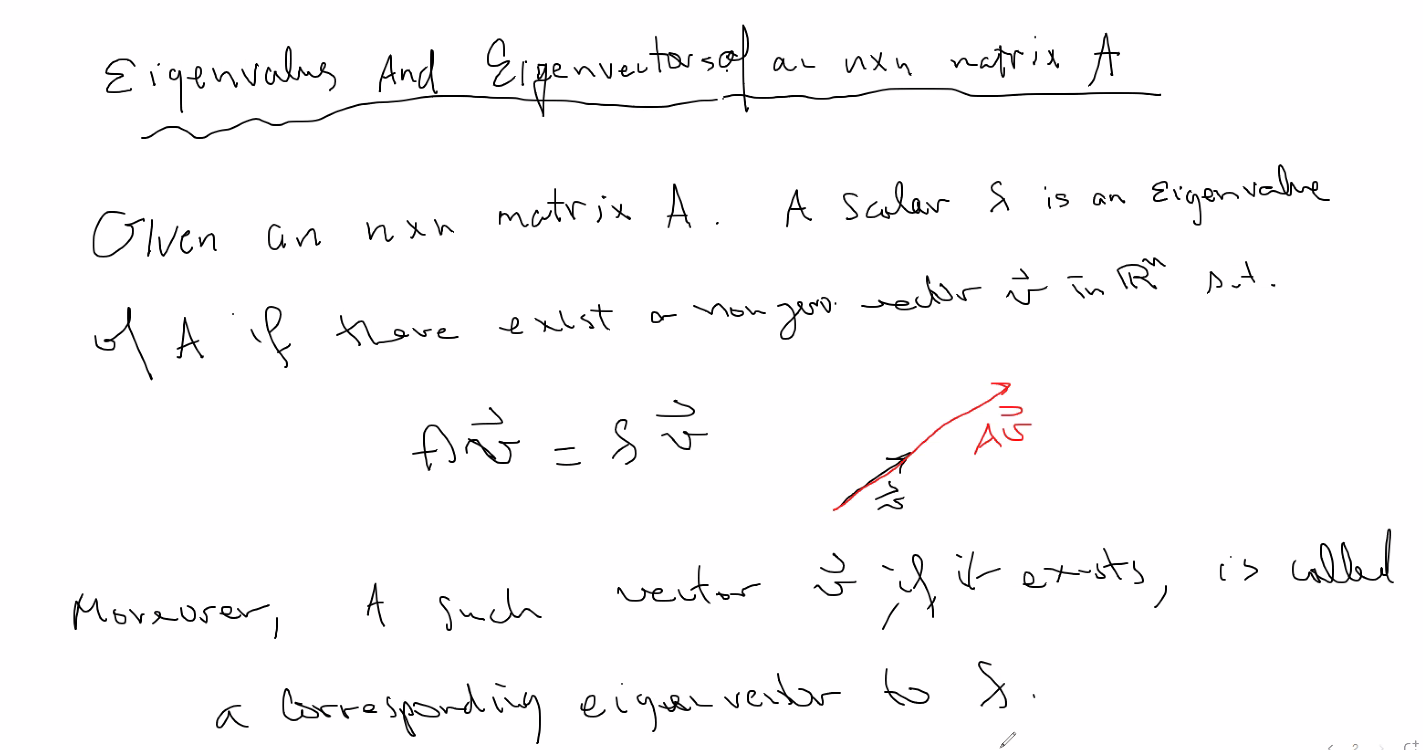 Eigenvalues And Eigenvectors of an nxn matrix A
Given an nxn matrix A. A scalar λ is an Eigenvalue
of A if there exist a non zero vector v⃗ in ℝⁿ s.t.
Av⃗ = λv⃗
Av⃗
v⃗
Moreover, A such vector v⃗, if it exists, is called
a corresponding eigenvector to λ.